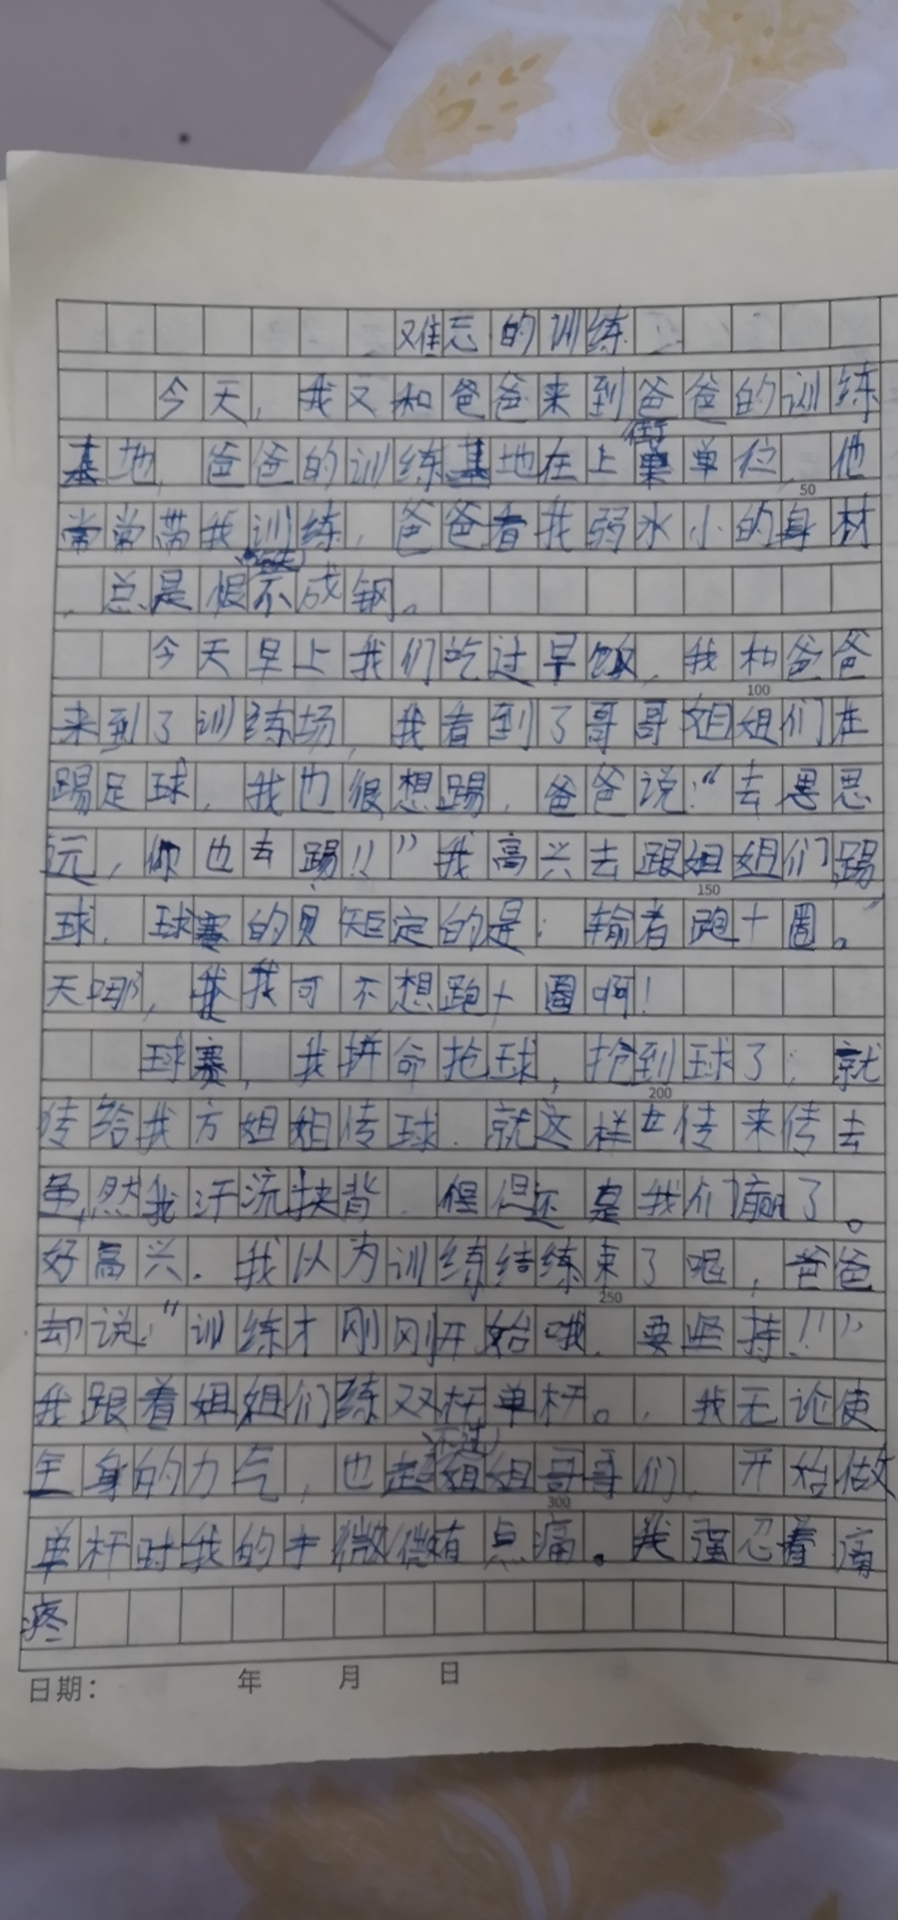 难忘的训练
今天，我又和爸爸来到爸爸的训练
基地，爸爸的训练基地在上街单位，他
常常带我训练，爸爸看我弱小的身材
，总是恨不成钢。
今天早上我们吃过早饭，我和爸爸
来到了训练场，我看到了哥哥姐姐们在
踢足球，我也很想踢，爸爸说：“去思思
远，你也去踢！！”我高兴去跟姐姐们踢
球，球赛的规定的是：输者跑十圈。
天哪，我我可不想跑十圈啊！
球赛，我拼命抢球，抢到球了，就
传给我方姐姐传球，就这样传来传去
虽然我汗流挟背，但还是我们赢了。
好高兴，我以为训练结练束了呢，爸爸
却说：“训练才刚刚开始哦，要坚持！！”
我跟着姐姐们练双杆单杆。，我无论使
全身的力气，也超不过姐姐哥哥们，开始做
单杆时我的手微微有点痛。我强忍着痛
疼
50
100
150
200
250
300
日期： 年 月 日